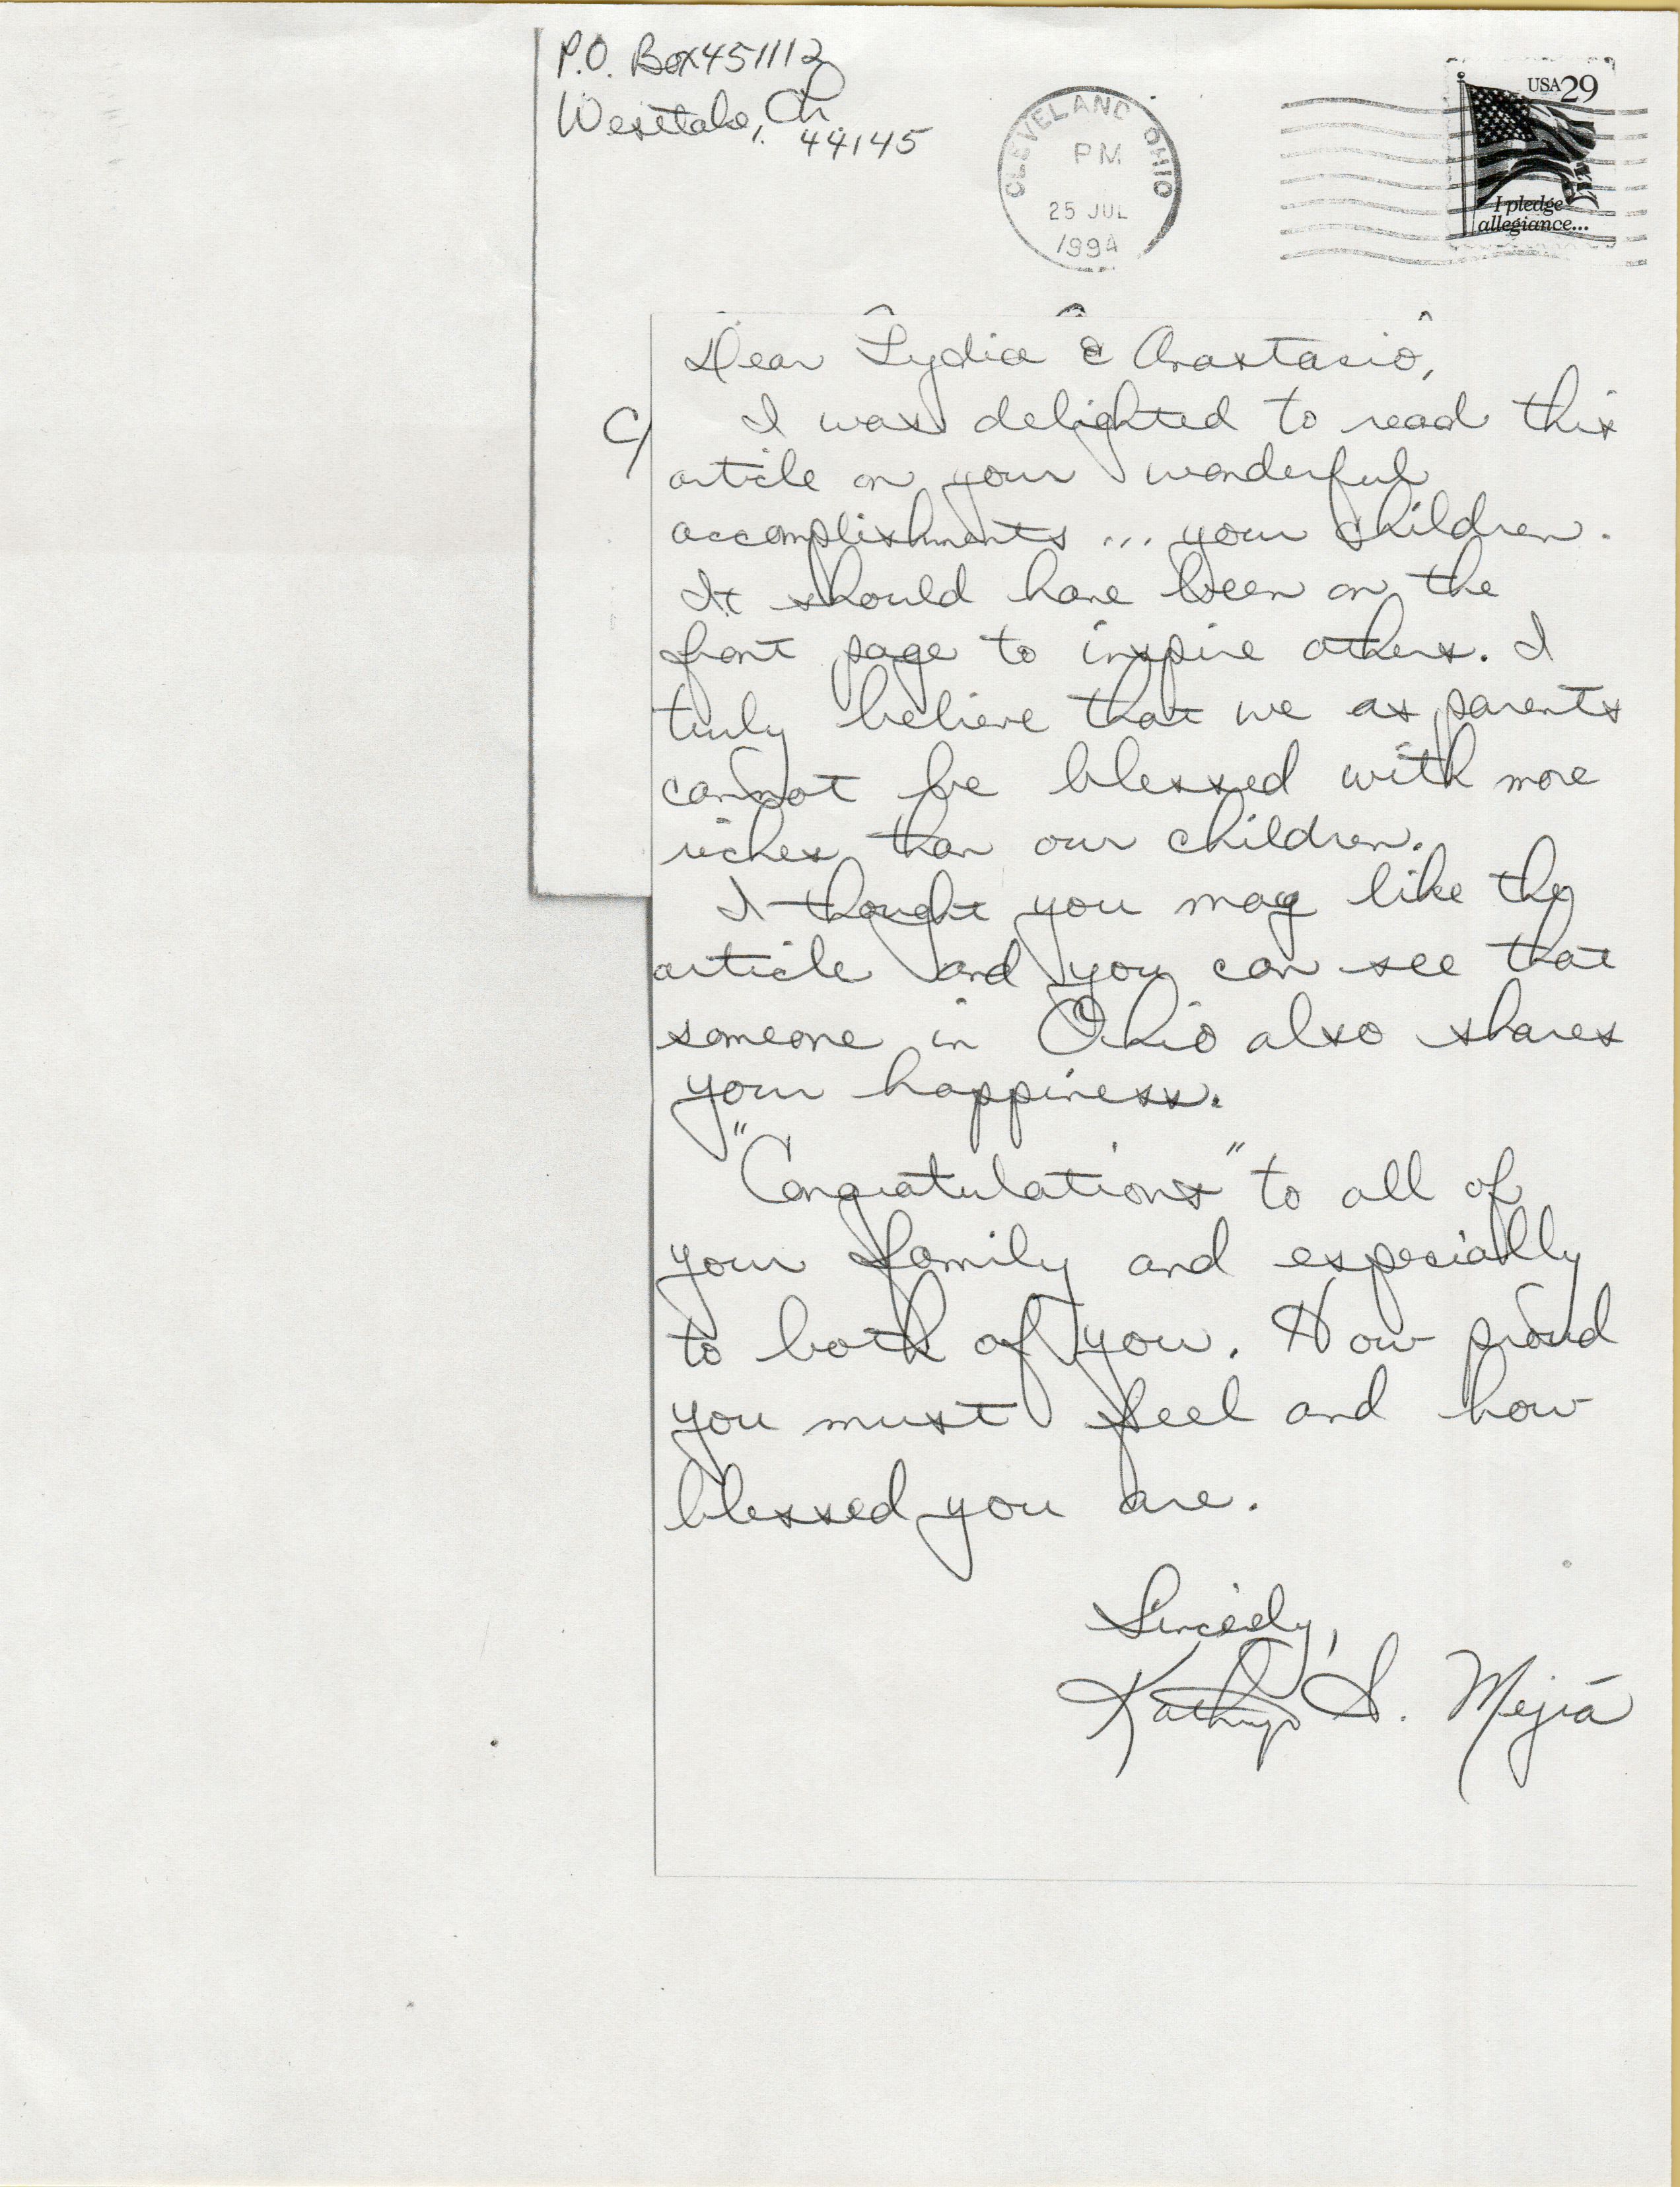 P.O. Box 451112
Westlake, Oh.
44145
CLEVELAND OHIO
PM
25 JUL
1994
USA 29
I pledge
allegiance...
Dear Lydia & Anastasio,
I was delighted to read this
article on your wonderful
accomplishments ... your children.
It should have been on the
front page to inspire others. I
truly believe that we as parents
cannot be blessed with more
riches than our children.
I thought you may like the
article and you can see that
someone in Ohio also shares
your happiness.
"Congratulations" to all of
your family and especially
to both of you. How proud
you must feel and how
blessed you are.
Sincerely,
Kathryn S. Mejiá